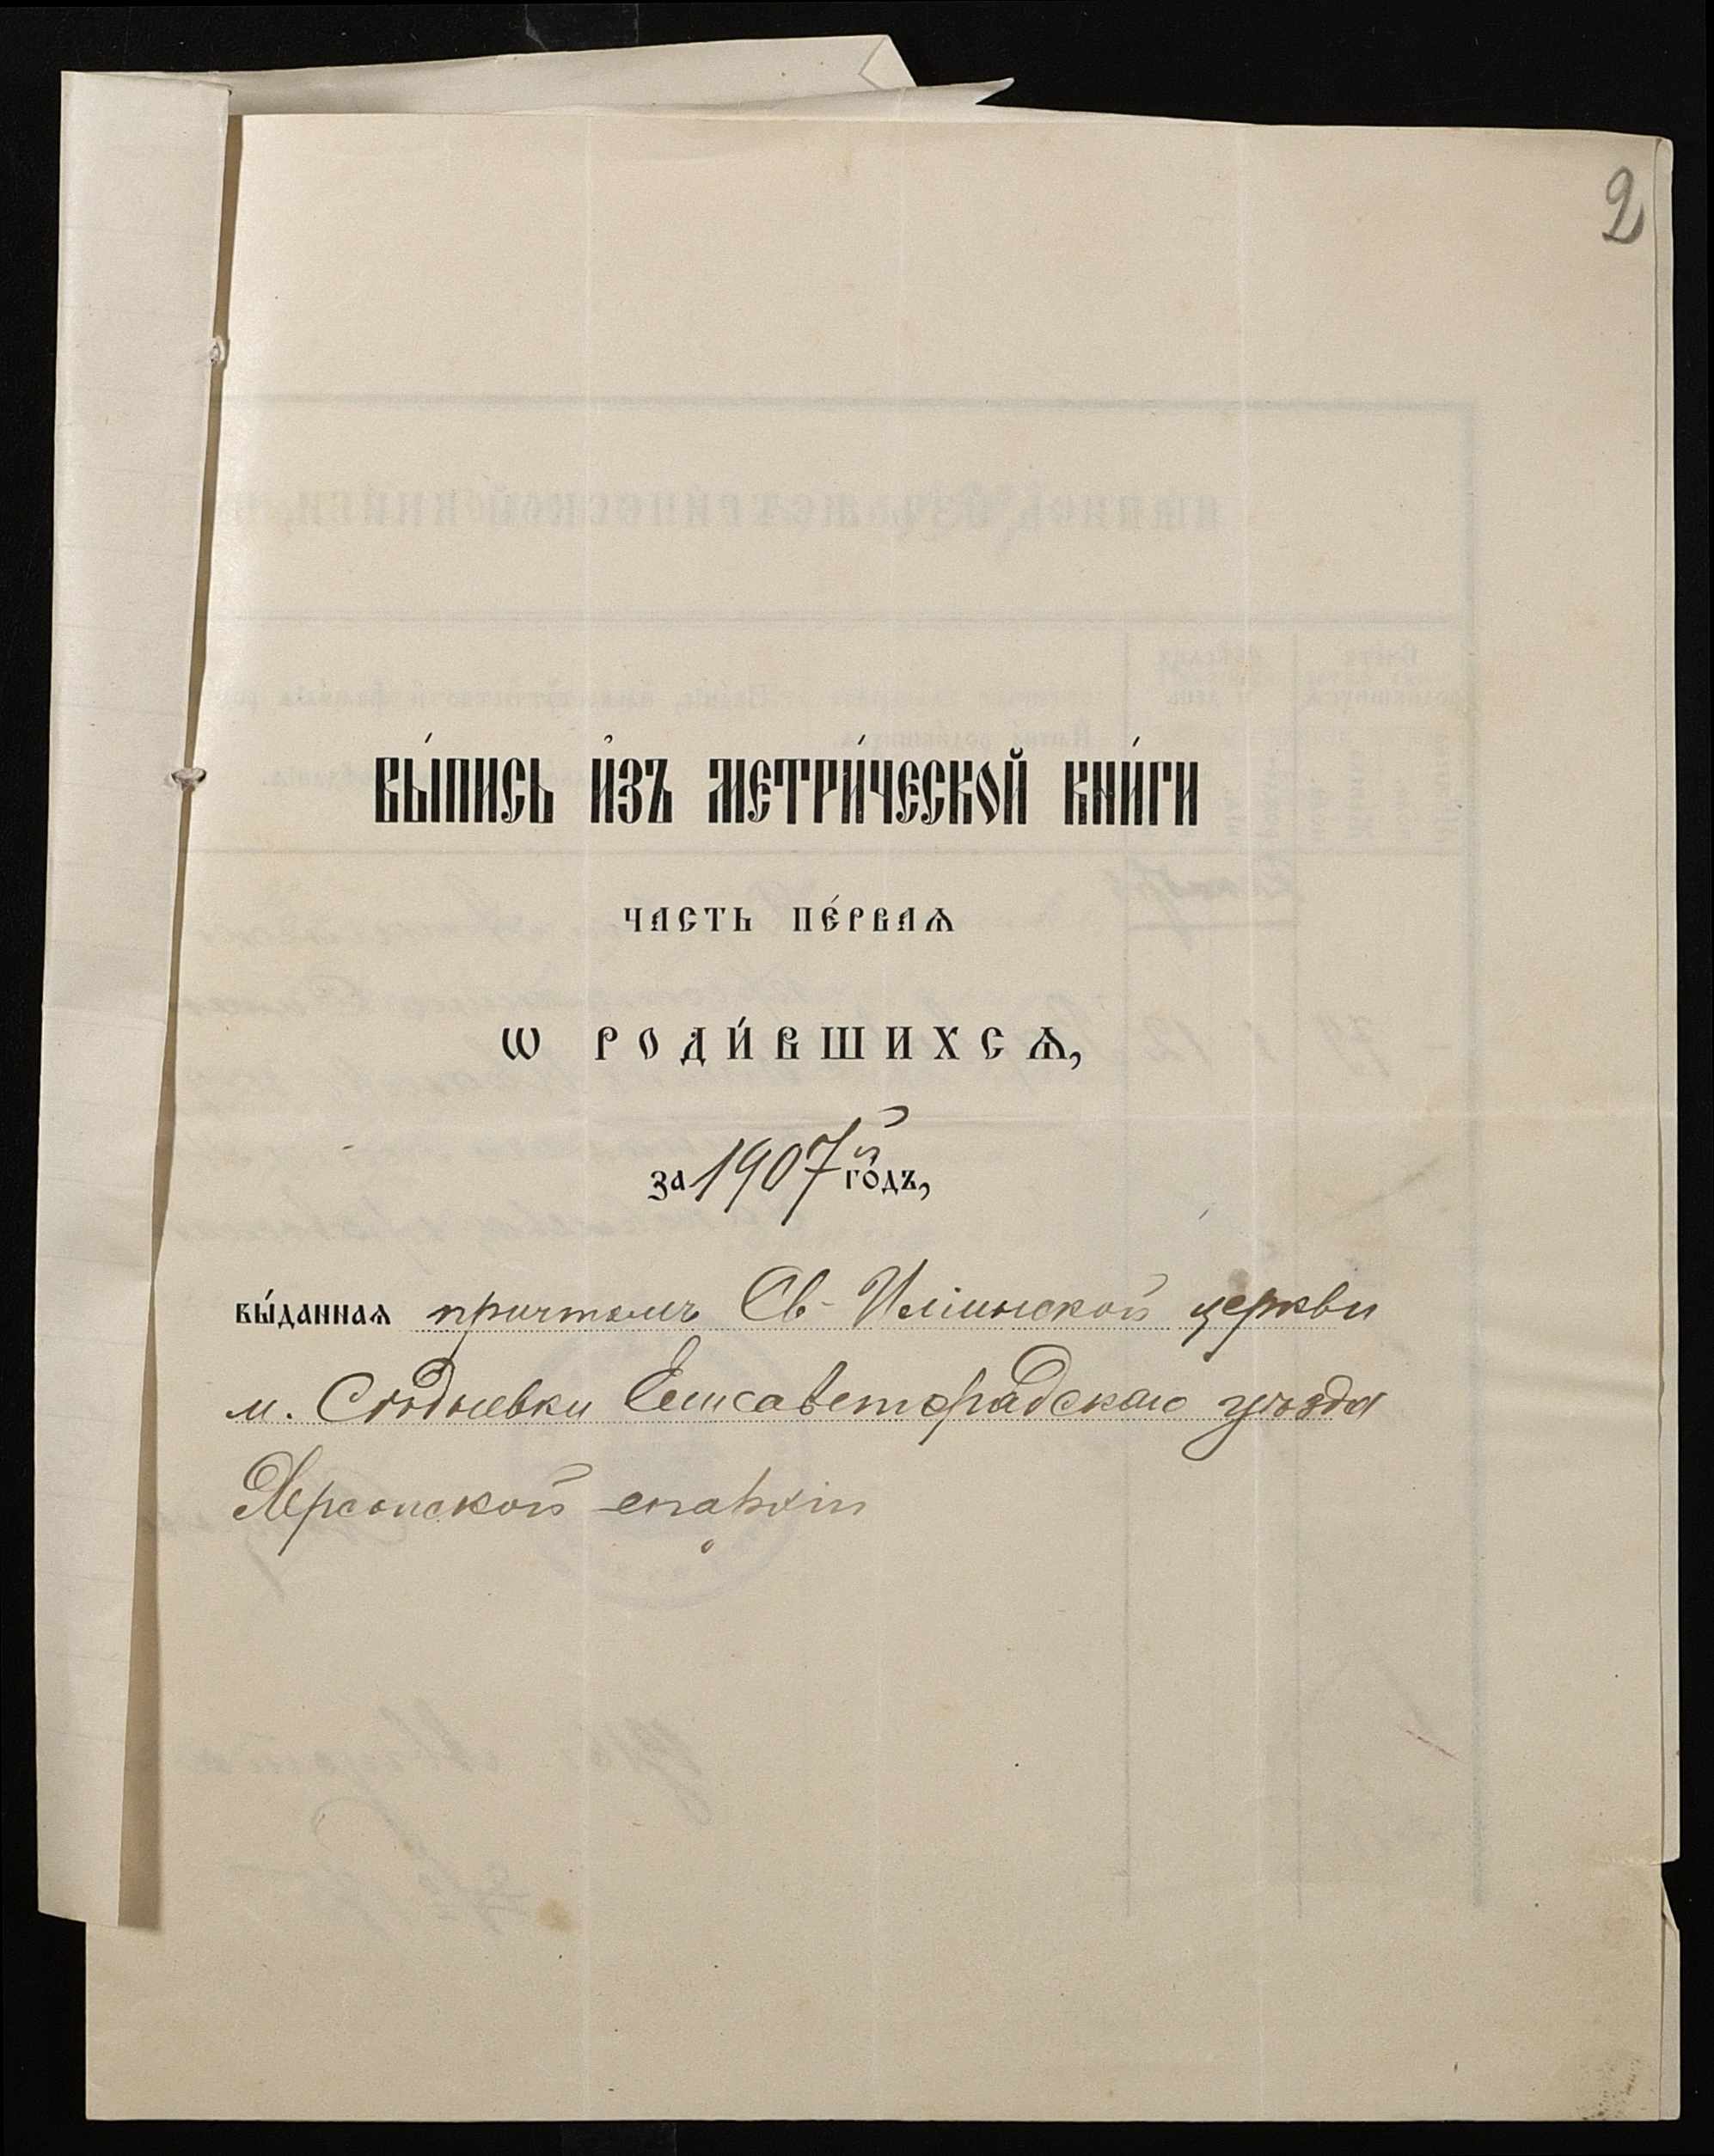 2
Вы́пись и҆зъ метри́ческой кни́ги
часть пе́рваѧ
ѡ роди́вшихсѧ,
за 1907й го́дъ,
вы́даннаѧ причтомъ Св-Иліинской церкви
м. Елисаветградскаго уѣзда
Херсонской епархіи